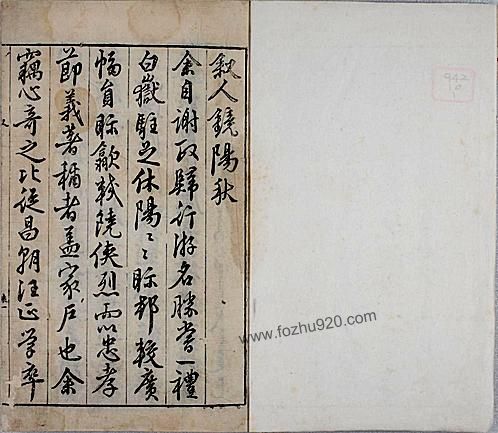 敘人鏡陽秋
余自謝政歸行游名勝嘗一禮
白嶽駐足休陽〻眎郡較廣
幅員眎歙較饒俠烈而以忠孝
節義著稱者蓋家戶也余
竊心奇之比從昌朝汪學卒
942
0
1
www.fozhu920.com